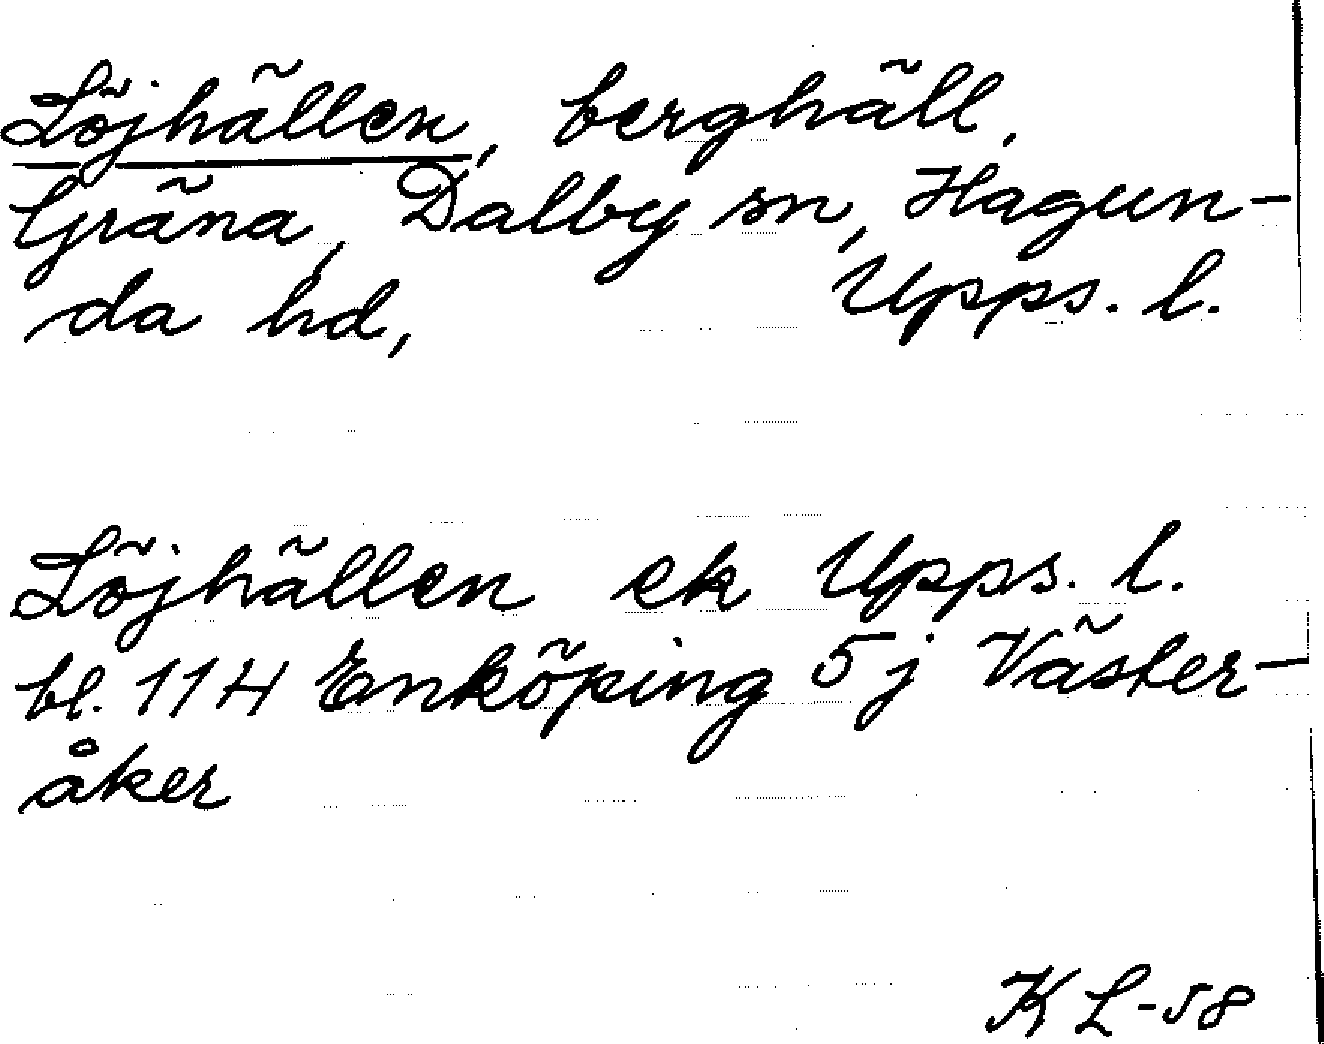 Löjhällen, berghäll,
Gräna, Dalby sn, Hagun-
da hd, Upps. l.
Löjhällen ek Upps. l.
bl. 114 Enköping 5j Väster-
åker
KL-58